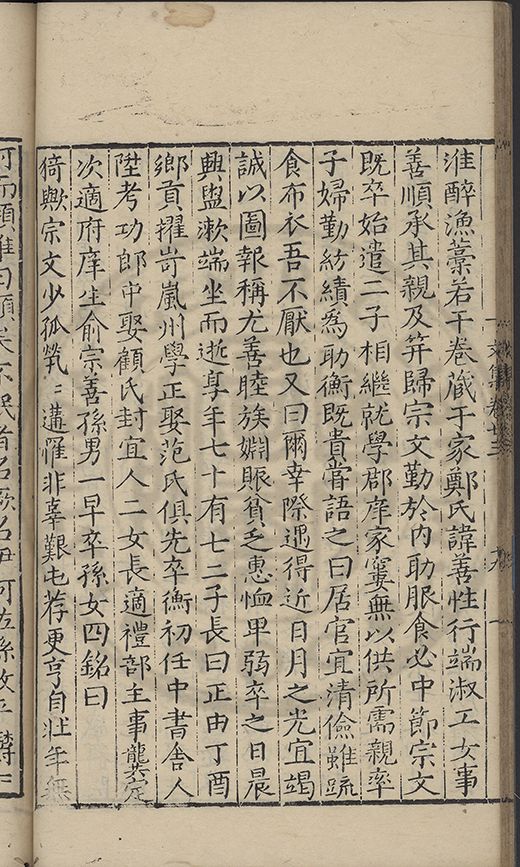 淮醉漁藁若干卷藏于家鄭氏諱善性行端淑工女事
善順承其親及笄歸宗文勤於内助服食必中節宗文
既卒始遣二子相繼就學郡庠家窶無以供所需親率
子婦勤紡績爲助衡既貴嘗語之曰居官宜清儉雖疏
食布衣吾不厭也又曰爾幸際遇得近日月之光宜竭
誠以圖報稱尤善睦族婣賑貧乏惠恤卑弱卒之日晨
興盥漱端坐而逝享年七十有七二子長曰正由丁酉
鄉貢擢岢嵐州學正娶范氏俱先卒衡初任中書舍人
陞考功郎中娶顧氏封宜人二女長適禮部主事龔英
次適府庠生俞宗善孫男一早卒孫女四銘曰
猗歟宗文少孤煢煢遘罹非辜艱屯荐更亨自壯年無